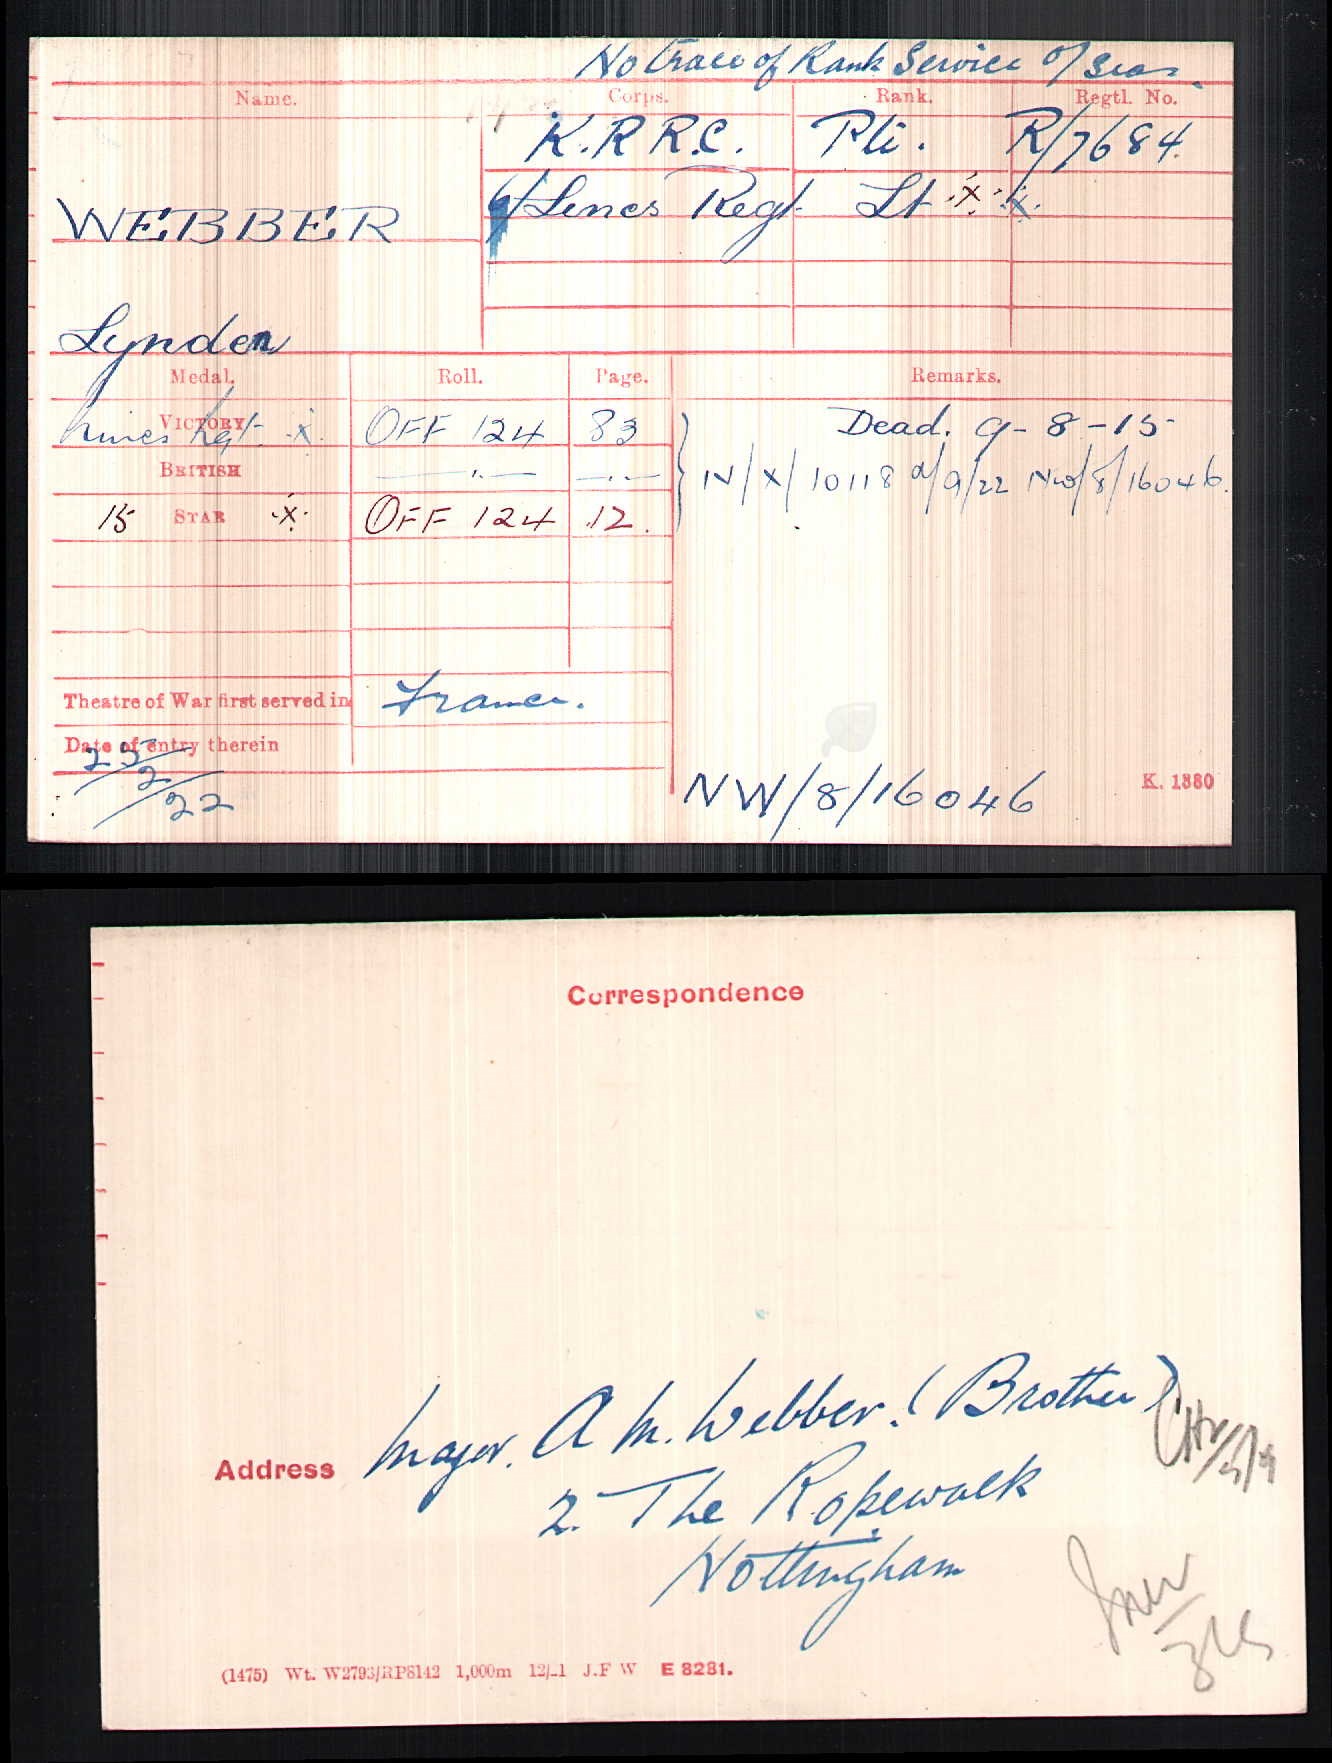 No trace of Rank Service o/seas.
Name. Corps. Rank. Regtl. No.
K.R.R.C. Pte. R/7684.
WEBBER 6/Lincs Regt. Lt ·x· ·x·
Lynden
Medal. Roll. Page. Remarks.
VICTORY Lincs Regt. ·x· OFF 124 83 Dead. 9-8-15
BRITISH —"— —"— N/X/10118 d/9/22 NW/8/16046.
15 STAR ·x· OFF 124 12.
Theatre of War first served in France.
Date of entry therein
23/2/22
NW/8/16046
K. 1380
Correspondence
Address Major. A M. Webber. (Brother)
2. The Ropewalk
Nottingham
(1475) Wt. W2793/RP8142 1,000m J.F W E 8281.